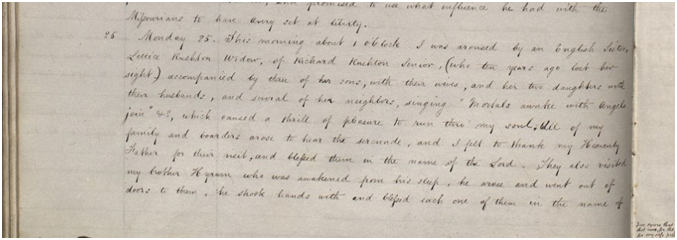 and promised to use what influence he had with the
Missourians to have Avery set at liberty.
25 Monday 25. This morning about 1 o'clock I was aroused by an English Sister,
Lettice Rushton Widow, of Richard Rushton Senior, (who ten years ago lost her
sight,) accompanied by three of her sons, with their wives, and her two daughters with
their husbands, and several of her neighbors, singing "Mortals awake with Angels
join" &c, which caused a thrill of pleasure to run thro' my soul. All of my
family and boarders arose to hear the serenade, and I felt to thank my Heavenly
Father for their visit, and blessed them in the name of the Lord. They also visited
my brother Hyrum who was awakened from his sleep, he arose and went out of
doors to them, he shook hands with and blessed each one of them in the name of